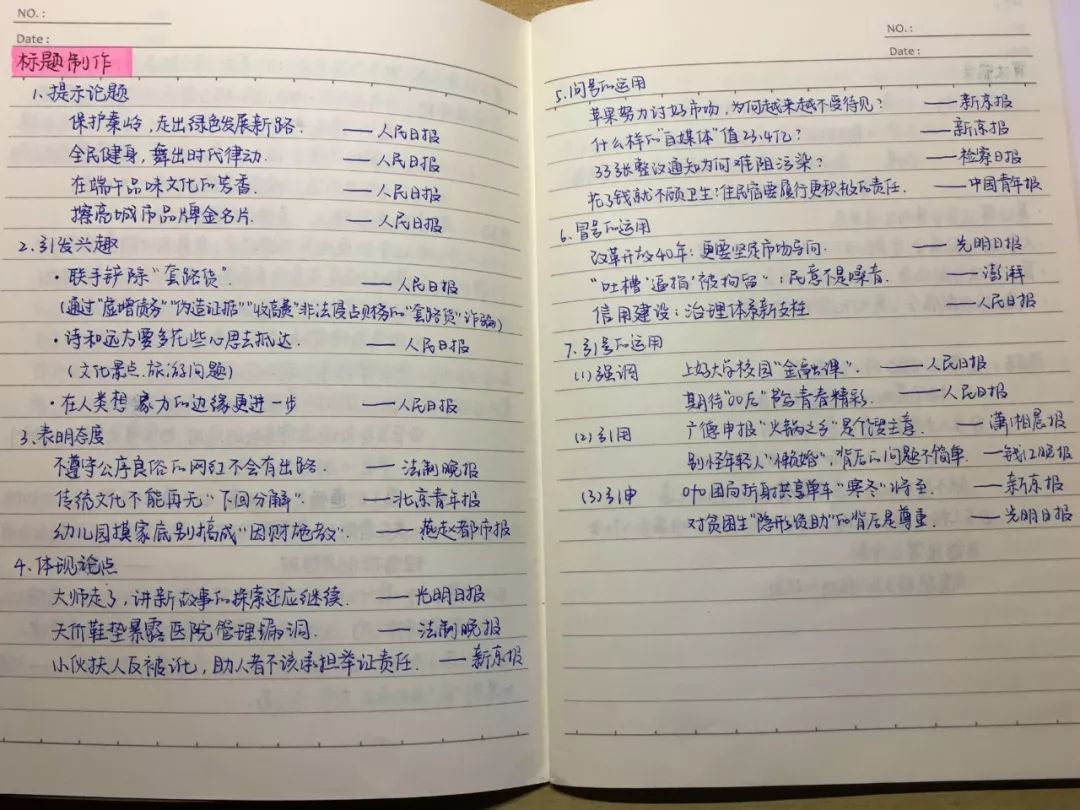 NO.:
Date:
标题制作
1、提示论题
保护秦岭,走出绿色发展新路. ——人民日报
全民健身,舞出时代律动. ——人民日报
在端午品味文化的芳香. ——人民日报
擦亮城市品牌金名片. ——人民日报
2、引发兴趣
·联手铲除"套路贷". ——人民日报
(通过"虚增债务""伪造证据""收高费"非法侵占财务的"套路贷"诈骗)
·诗和远方要多花些心思去抵达. ——人民日报
(文化景点、旅游问题)
·在人类想象力的边缘更进一步 ——人民日报
3、表明态度
不遵守公序良俗的网红不会有出路. ——法制晚报
传统文化不能再无"下回分解". ——北京青年报
幼儿园摸家底别搞成"因财施教". ——燕赵都市报
4、体现论点
大师走了,讲新故事的探索还应继续. ——光明日报
天价鞋垫暴露医院管理漏洞. ——法制晚报
小伙扶人反被讹,助人者不该承担举证责任. ——新京报
NO.:
Date:
5、问号的运用
苹果努力讨好市场,为何越来越不受待见? ——新京报
什么样的"自媒体"值23.4亿? ——新京报
33张整改通知为何难阻污染? ——检察日报
花了钱就不顾卫生?住民宿要履行更积极的责任. ——中国青年报
6、冒号的运用
改革开放40年:更要坚定市场导向. ——光明日报
"吐槽'逼捐'被拘留":民意不是噪音. ——澎湃
信用建设:治理体系新支柱 ——人民日报
7、引号的运用
(1)强调 上好大学校园"金融课". ——人民日报
期待"00后"书写青春精彩. ——人民日报
(2)引用 广德申报"火锅之乡"是个馊主意. ——潇湘晨报
别怪年轻人"懒婚",背后的问题不简单. ——钱江晚报
(3)引申 ofo困局折射共享单车"寒冬"将至. ——新京报
对贫困生"隐形资助"的背后是尊重. ——光明日报